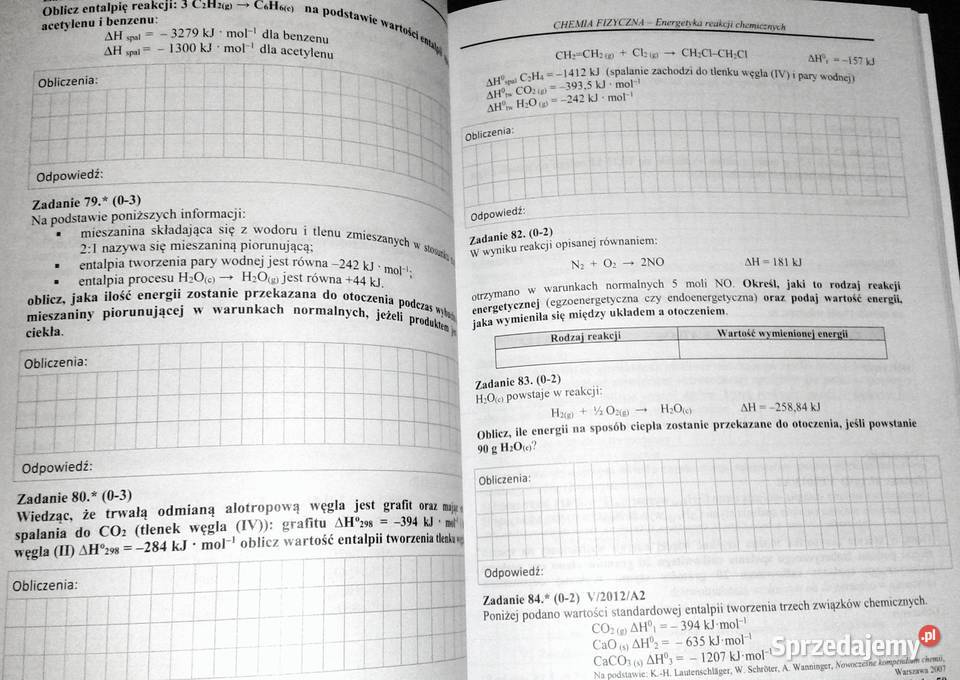 Oblicz entalpię reakcji: 3 C₂H₂(g) → C₆H₆(c) na podstawie wartości entalpii
acetylenu i benzenu:
ΔH spal = – 3279 kJ · mol⁻¹ dla benzenu
ΔH spal = – 1300 kJ · mol⁻¹ dla acetylenu
Obliczenia:
Odpowiedź:
Zadanie 79.* (0-3)
Na podstawie poniższych informacji:
▪ mieszanina składająca się z wodoru i tlenu zmieszanych w stosunku
2:1 nazywa się mieszaniną piorunującą;
▪ entalpia tworzenia pary wodnej jest równa –242 kJ · mol⁻¹;
▪ entalpia procesu H₂O(c) → H₂O(g) jest równa +44 kJ.
oblicz, jaka ilość energii zostanie przekazana do otoczenia podczas
mieszaniny piorunującej w warunkach normalnych, jeżeli produktem
ciekła.
Obliczenia:
Odpowiedź:
Zadanie 80.* (0-3)
Wiedząc, że trwałą odmianą alotropową węgla jest grafit oraz mając
spalania do CO₂ (tlenek węgla (IV)): grafitu ΔH°₂₉₈ = –394 kJ · mol⁻¹
węgla (II) ΔH°₂₉₈ = –284 kJ · mol⁻¹ oblicz wartość entalpii tworzenia tlenku
Obliczenia:
CHEMIA FIZYCZNA – Energetyka reakcji chemicznych
CH₂=CH₂ (g) + Cl₂ (g) → CH₂Cl–CH₂Cl ΔH⁰r = –157 kJ
ΔH⁰spal C₂H₄ = –1412 kJ (spalanie zachodzi do tlenku węgla (IV) i pary wodnej)
ΔH⁰tw CO₂ (g) = –393,5 kJ · mol⁻¹
ΔH⁰tw H₂O (g) = –242 kJ · mol⁻¹
Obliczenia:
Odpowiedź:
Zadanie 82. (0-2)
W wyniku reakcji opisanej równaniem:
N₂ + O₂ → 2NO ΔH = 181 kJ
otrzymano w warunkach normalnych 5 moli NO. Określ, jaki to rodzaj reakcji
energetycznej (egzoenergetyczna czy endoenergetyczna) oraz podaj wartość energii,
jaka wymieniła się między układem a otoczeniem.
Rodzaj reakcji Wartość wymienionej energii
Zadanie 83. (0-2)
H₂O(c) powstaje w reakcji:
H₂(g) + ½ O₂(g) → H₂O(c) ΔH = –258,84 kJ
Oblicz, ile energii na sposób ciepła zostanie przekazane do otoczenia, jeśli powstanie
90 g H₂O(c)?
Obliczenia:
Odpowiedź:
Zadanie 84.* (0-2) V/2012/A2
Poniżej podano wartości standardowej entalpii tworzenia trzech związków chemicznych.
CO₂ (g) ΔH⁰₁ = – 394 kJ·mol⁻¹
CaO (s) ΔH⁰₂ = – 635 kJ·mol⁻¹
CaCO₃ (s) ΔH⁰₃ = – 1207 kJ·mol⁻¹
Na podstawie: K.-H. Lautenschläger, W. Schröter, A. Wanninger, Nowoczesne kompendium chemii,
Warszawa 2007
Sprzedajemy.pl